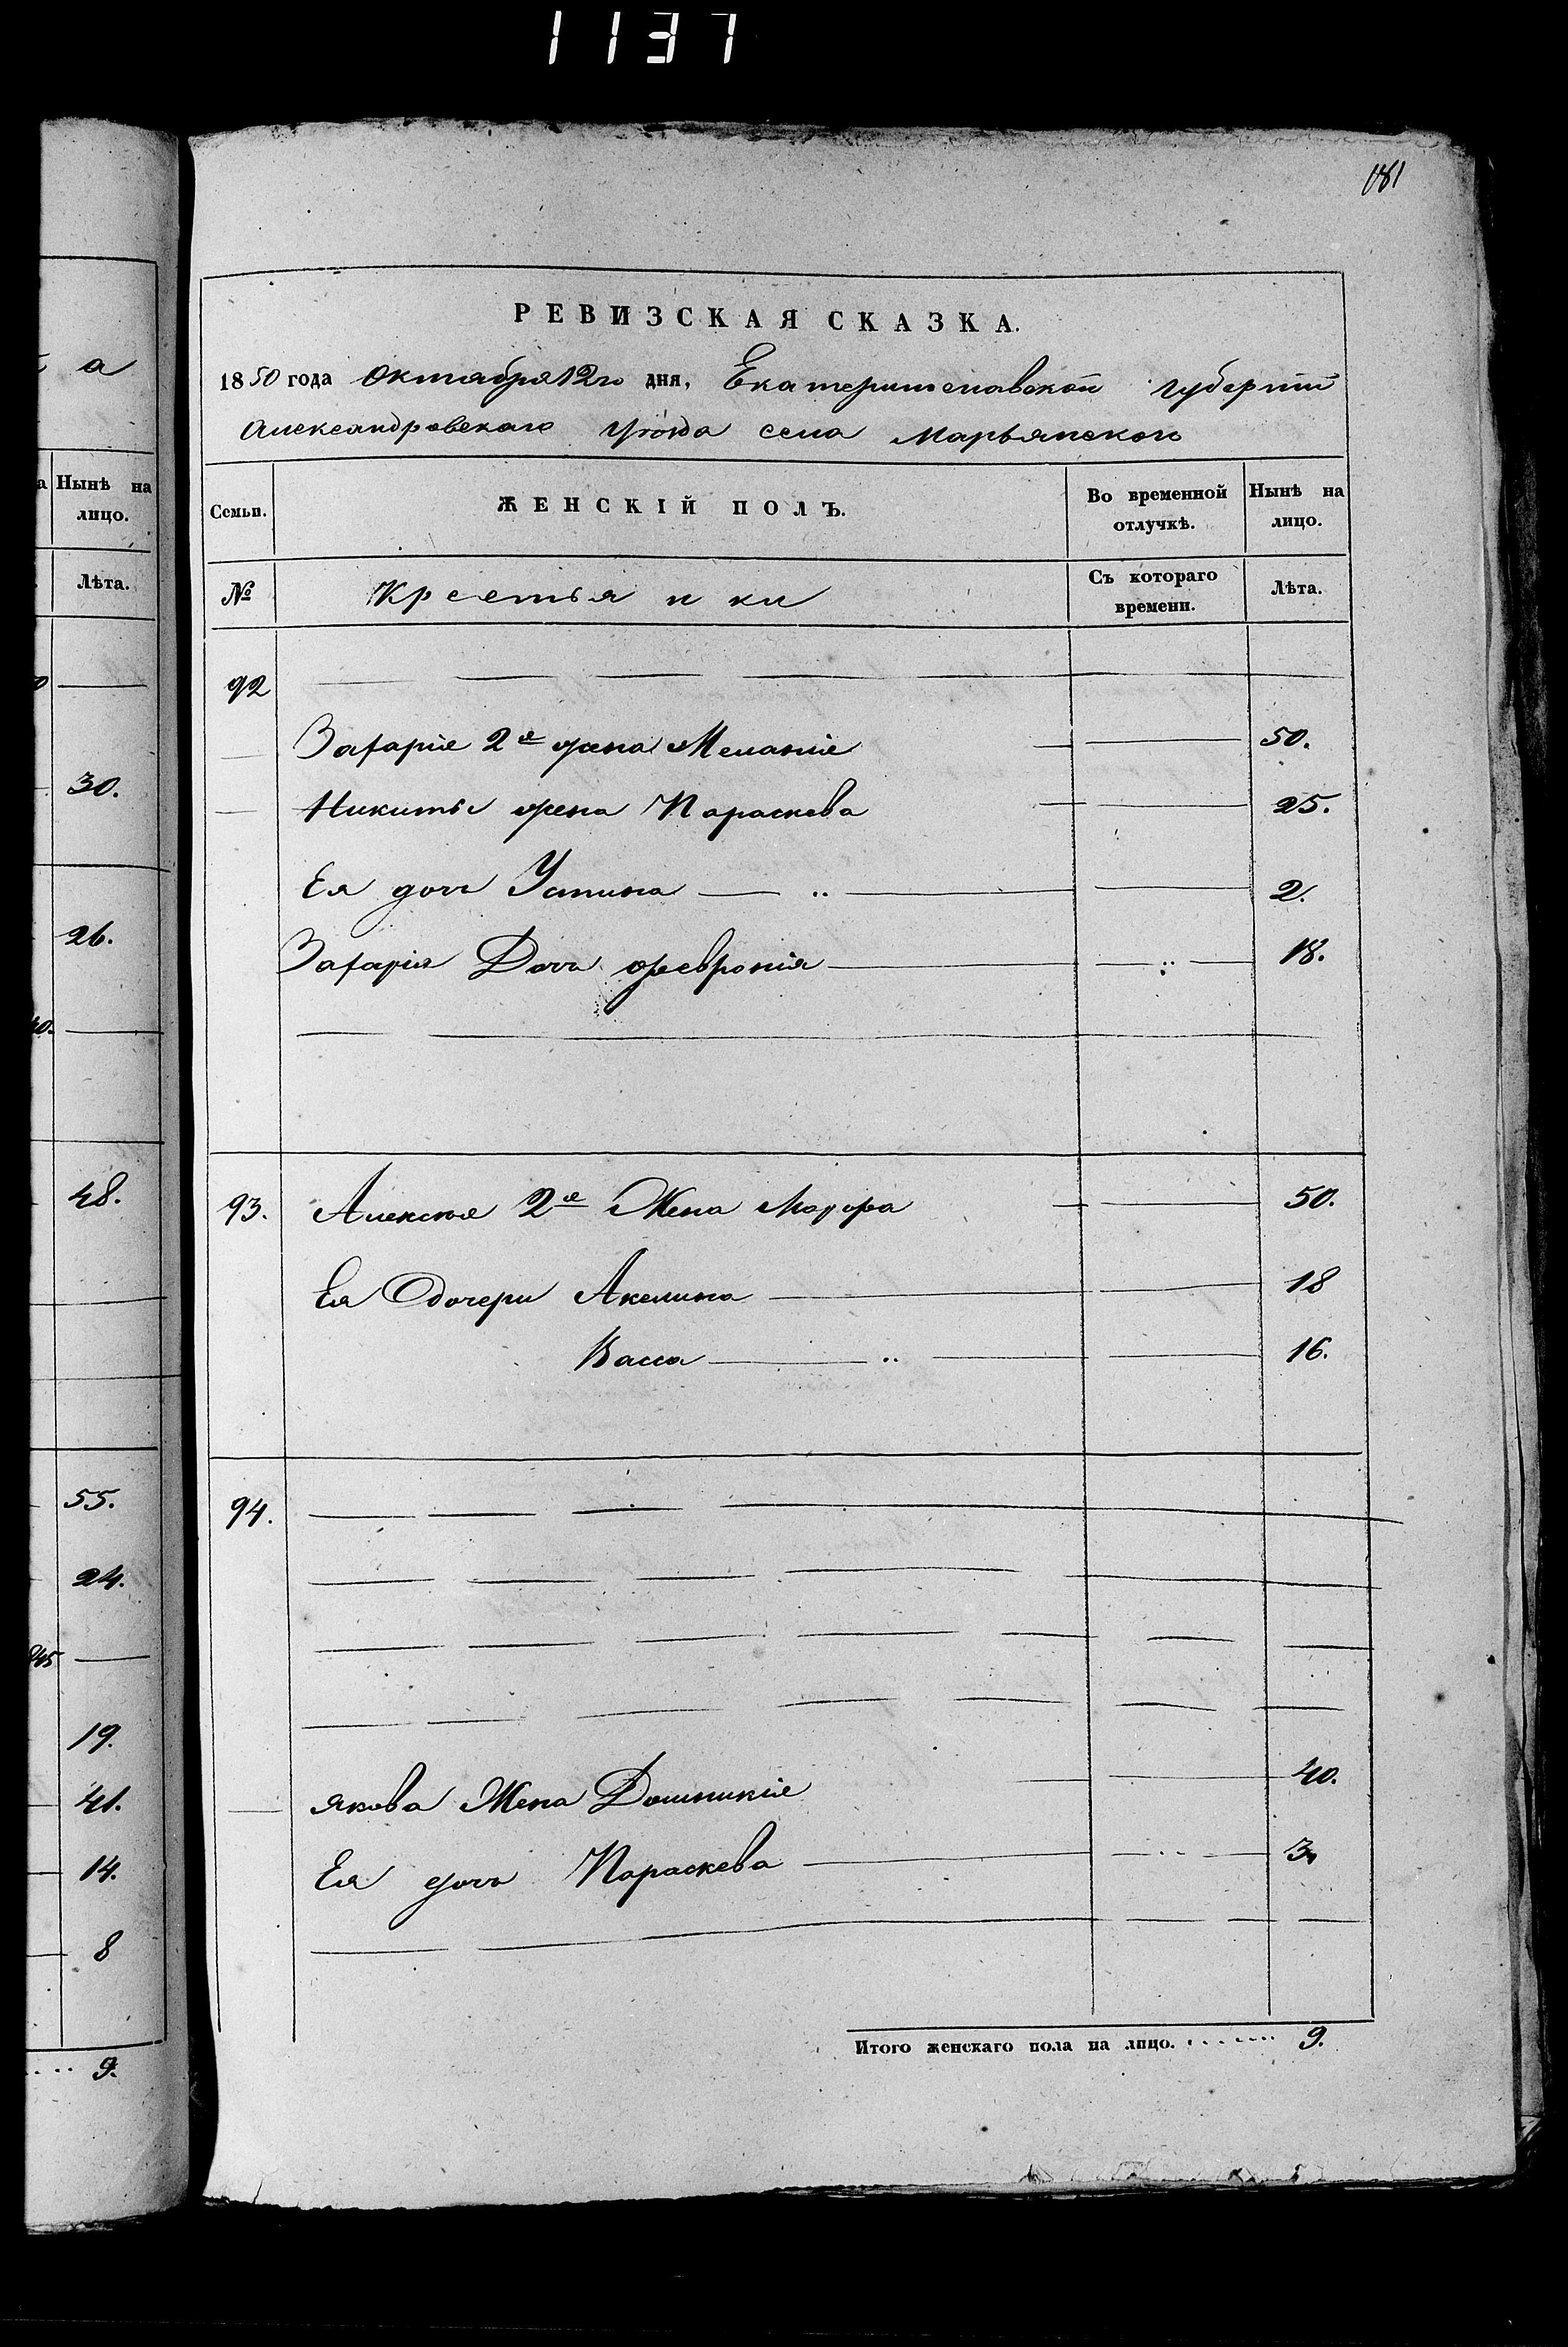 1137
181
РЕВИЗСКАЯ СКАЗКА.
1850 года Октября 12го дня, Екатеринославской губернии
Александровскаго уѣзда села Марьянскаго
Семьи. ЖЕНСКІЙ ПОЛЪ. Во временной отлучкѣ. Нынѣ на лицо.
№ Крестьянки Съ котораго времени. Лѣта.
92
Захаріе 2я жена Меланіе 50.
Никиты жена Параскева 25.
Ея дочь Устина 2.
Захарія Дочь Февронія 18.
93. Алексѣе 2я Жена Марфа 50.
Ея Дочери Акелина 18
Васса 16.
94.
Якова Жена Домникіе 40.
Ея дочь Параскева 3.
Итого женскаго пола на лицо. 9.
а
Нынѣ на
лицо.
Лѣта.
30.
26.
48.
55.
24.
19.
41.
14.
8
9.